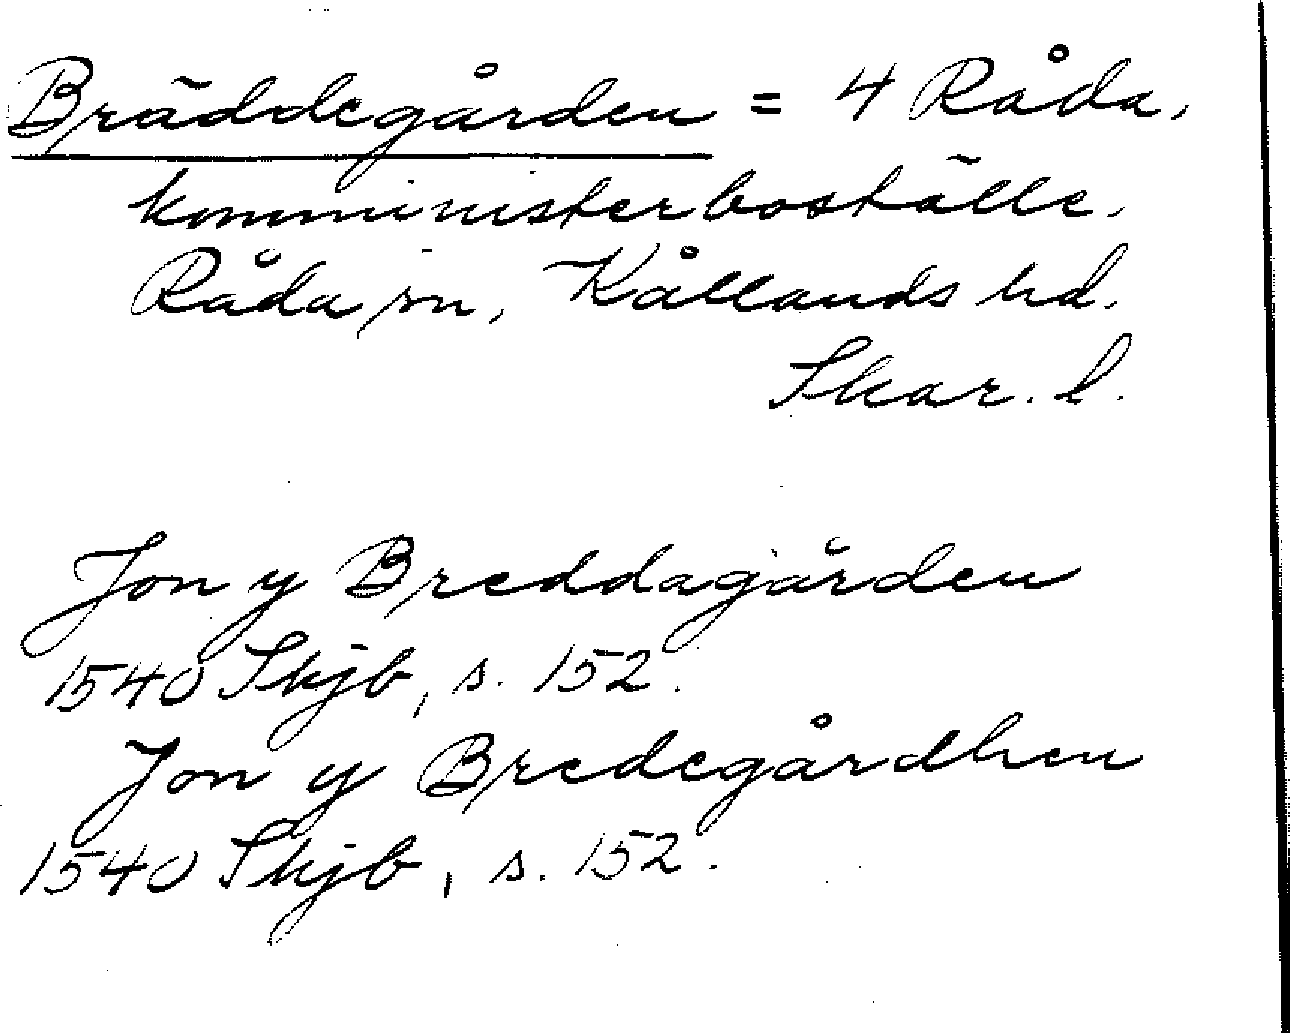 Bräddegården = 4 Råda,
komministerboställe,
Råda sn, Kållands hd.
Skar. l.
Jon y Breddagården
1540 Skjb, s. 152.
Jon y Bredegårdhen
1540 Skjb, s. 152.